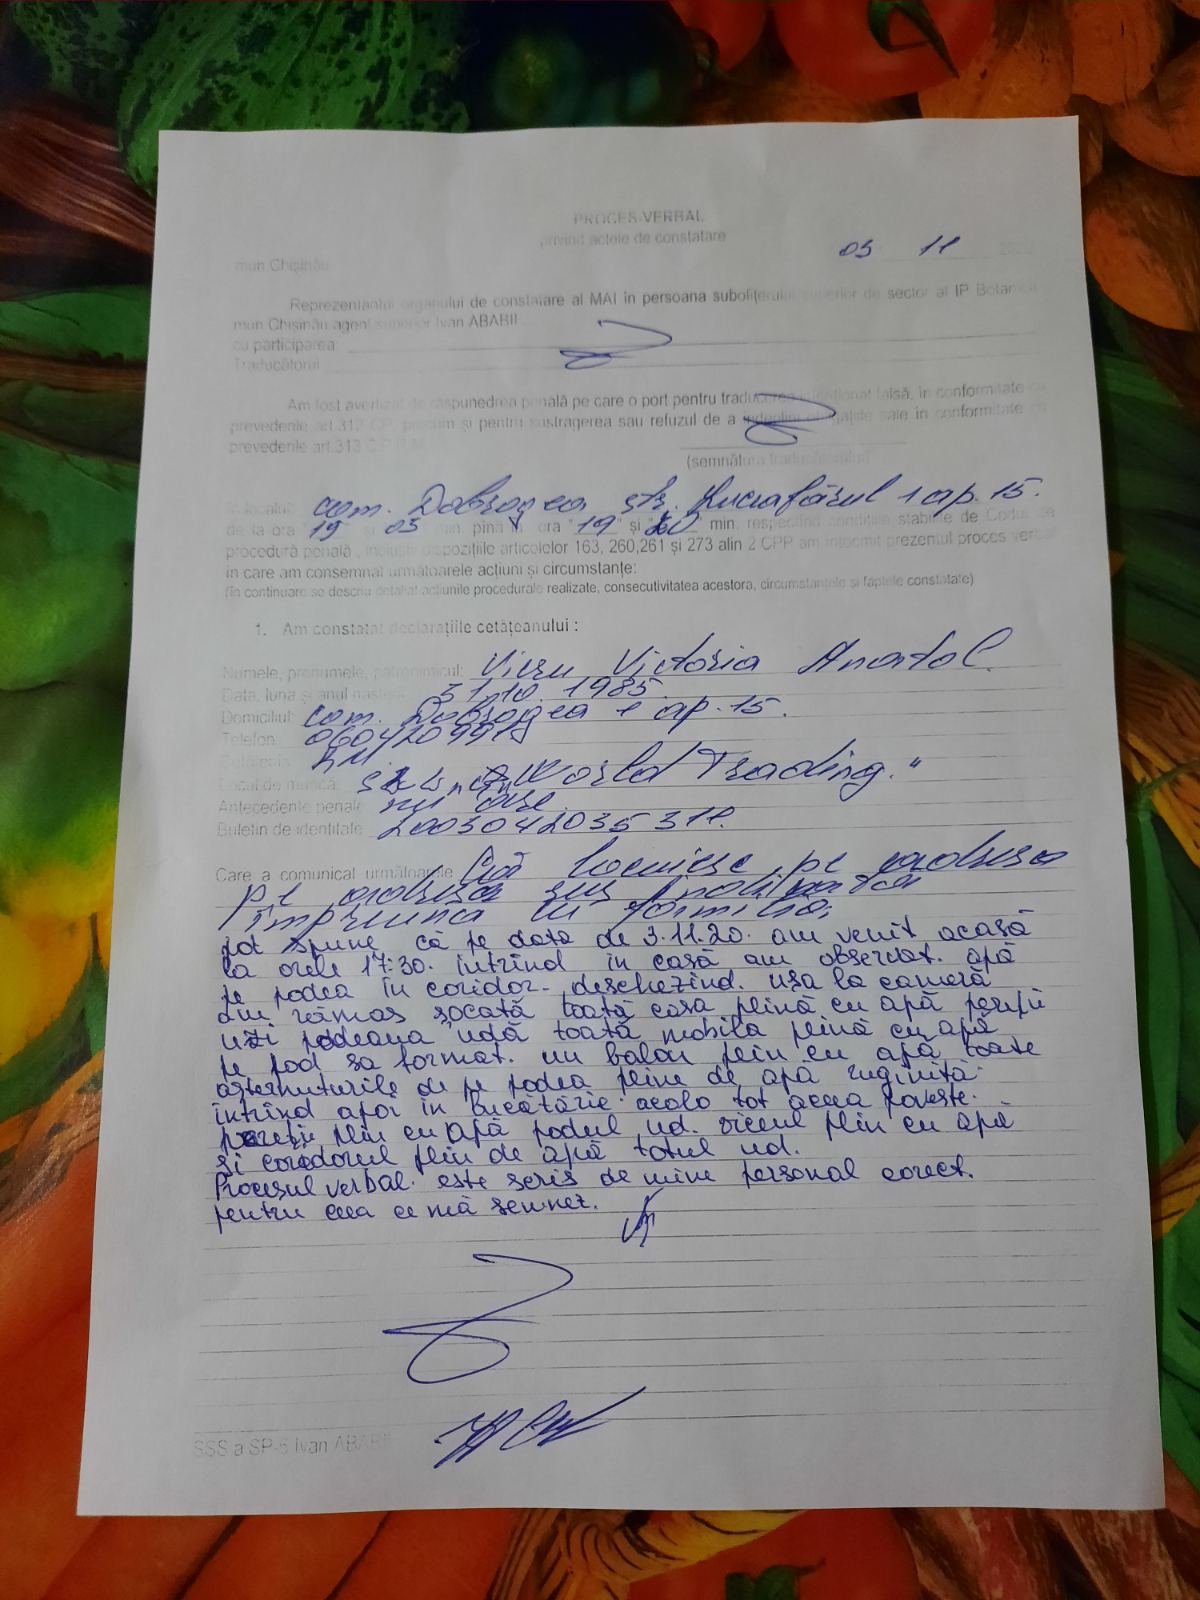 PROCES-VERBAL
privind actele de constatare
03 11
mun Chișinău
Reprezentantul organului de constatare al MAI în persoana subofițerului superior de sector al IP Botanica
mun Chișinău agent superior Ivan ABABII
cu participarea:
Traducătorul
Am fost avertizat de răspunedrea penală pe care o port pentru traducerea intenționat falsă, în conformitate cu
prevederile art.312 CP, precum și pentru sustragerea sau refuzul de a îndeplini obligațiile sale în conformitate cu
prevederile art.313 C.P.R.M.
(semnătura traducătorului)
În localul com. Dobrogea str. Luceafărul 1 ap. 15.
de la ora "19" și "05" min. pînă în ora "19" și "20" min. respectînd condițiile stabilite de Codul de
procedură penală, inclusiv dispozițiile articolelor 163, 260,261 și 273 alin 2 CPP am întocmit prezentul proces verbal
în care am consemnat următoarele acțiuni și circumstanțe:
(în continuare se descriu detaliat acțiunile procedurale realizate, consecutivitatea acestora, circumstanțele și faptele constatate)
1. Am constatat declarațiile cetățeanului :
Numele, prenumele, patronimicul: Vieru Victoria Anatol.
Data, luna și anul nașterii 31.10 1985.
Domiciliul: com. Dobrogea 1 ap. 15.
Telefon
RM
Locul de muncă: World Trading."
Antecedente penale nu are
Buletin de identitate 2003042035311.
Care a comunicat următoarele Că locuiesc pe adresa
pe adresa sus indicata
împreuna cu familia,
pot spune că pe data de 3.11.20. am venit acasă
la orele 17:30. intrînd in casă am observat. apă
pe podea în coridor. deschezind. ușa la cameră
am rămas șocată toată casa plină cu apă pereții
uzi podeaua udă toată mobila plină cu apă
pe pod sa format. un balon plin cu apă toate
așternuturile de pe podea pline de apă ruginită
întrînd apoi în bucătărie acolo tot aceea poveste.
pereții plin cu apă podul ud. viceul plin cu apă
și coredorul plin de apă totul ud.
Procesul verbal. este scris de mine personal corect.
pentru ceea ce mă semnez.
SSS a SP-5 Ivan ABABII